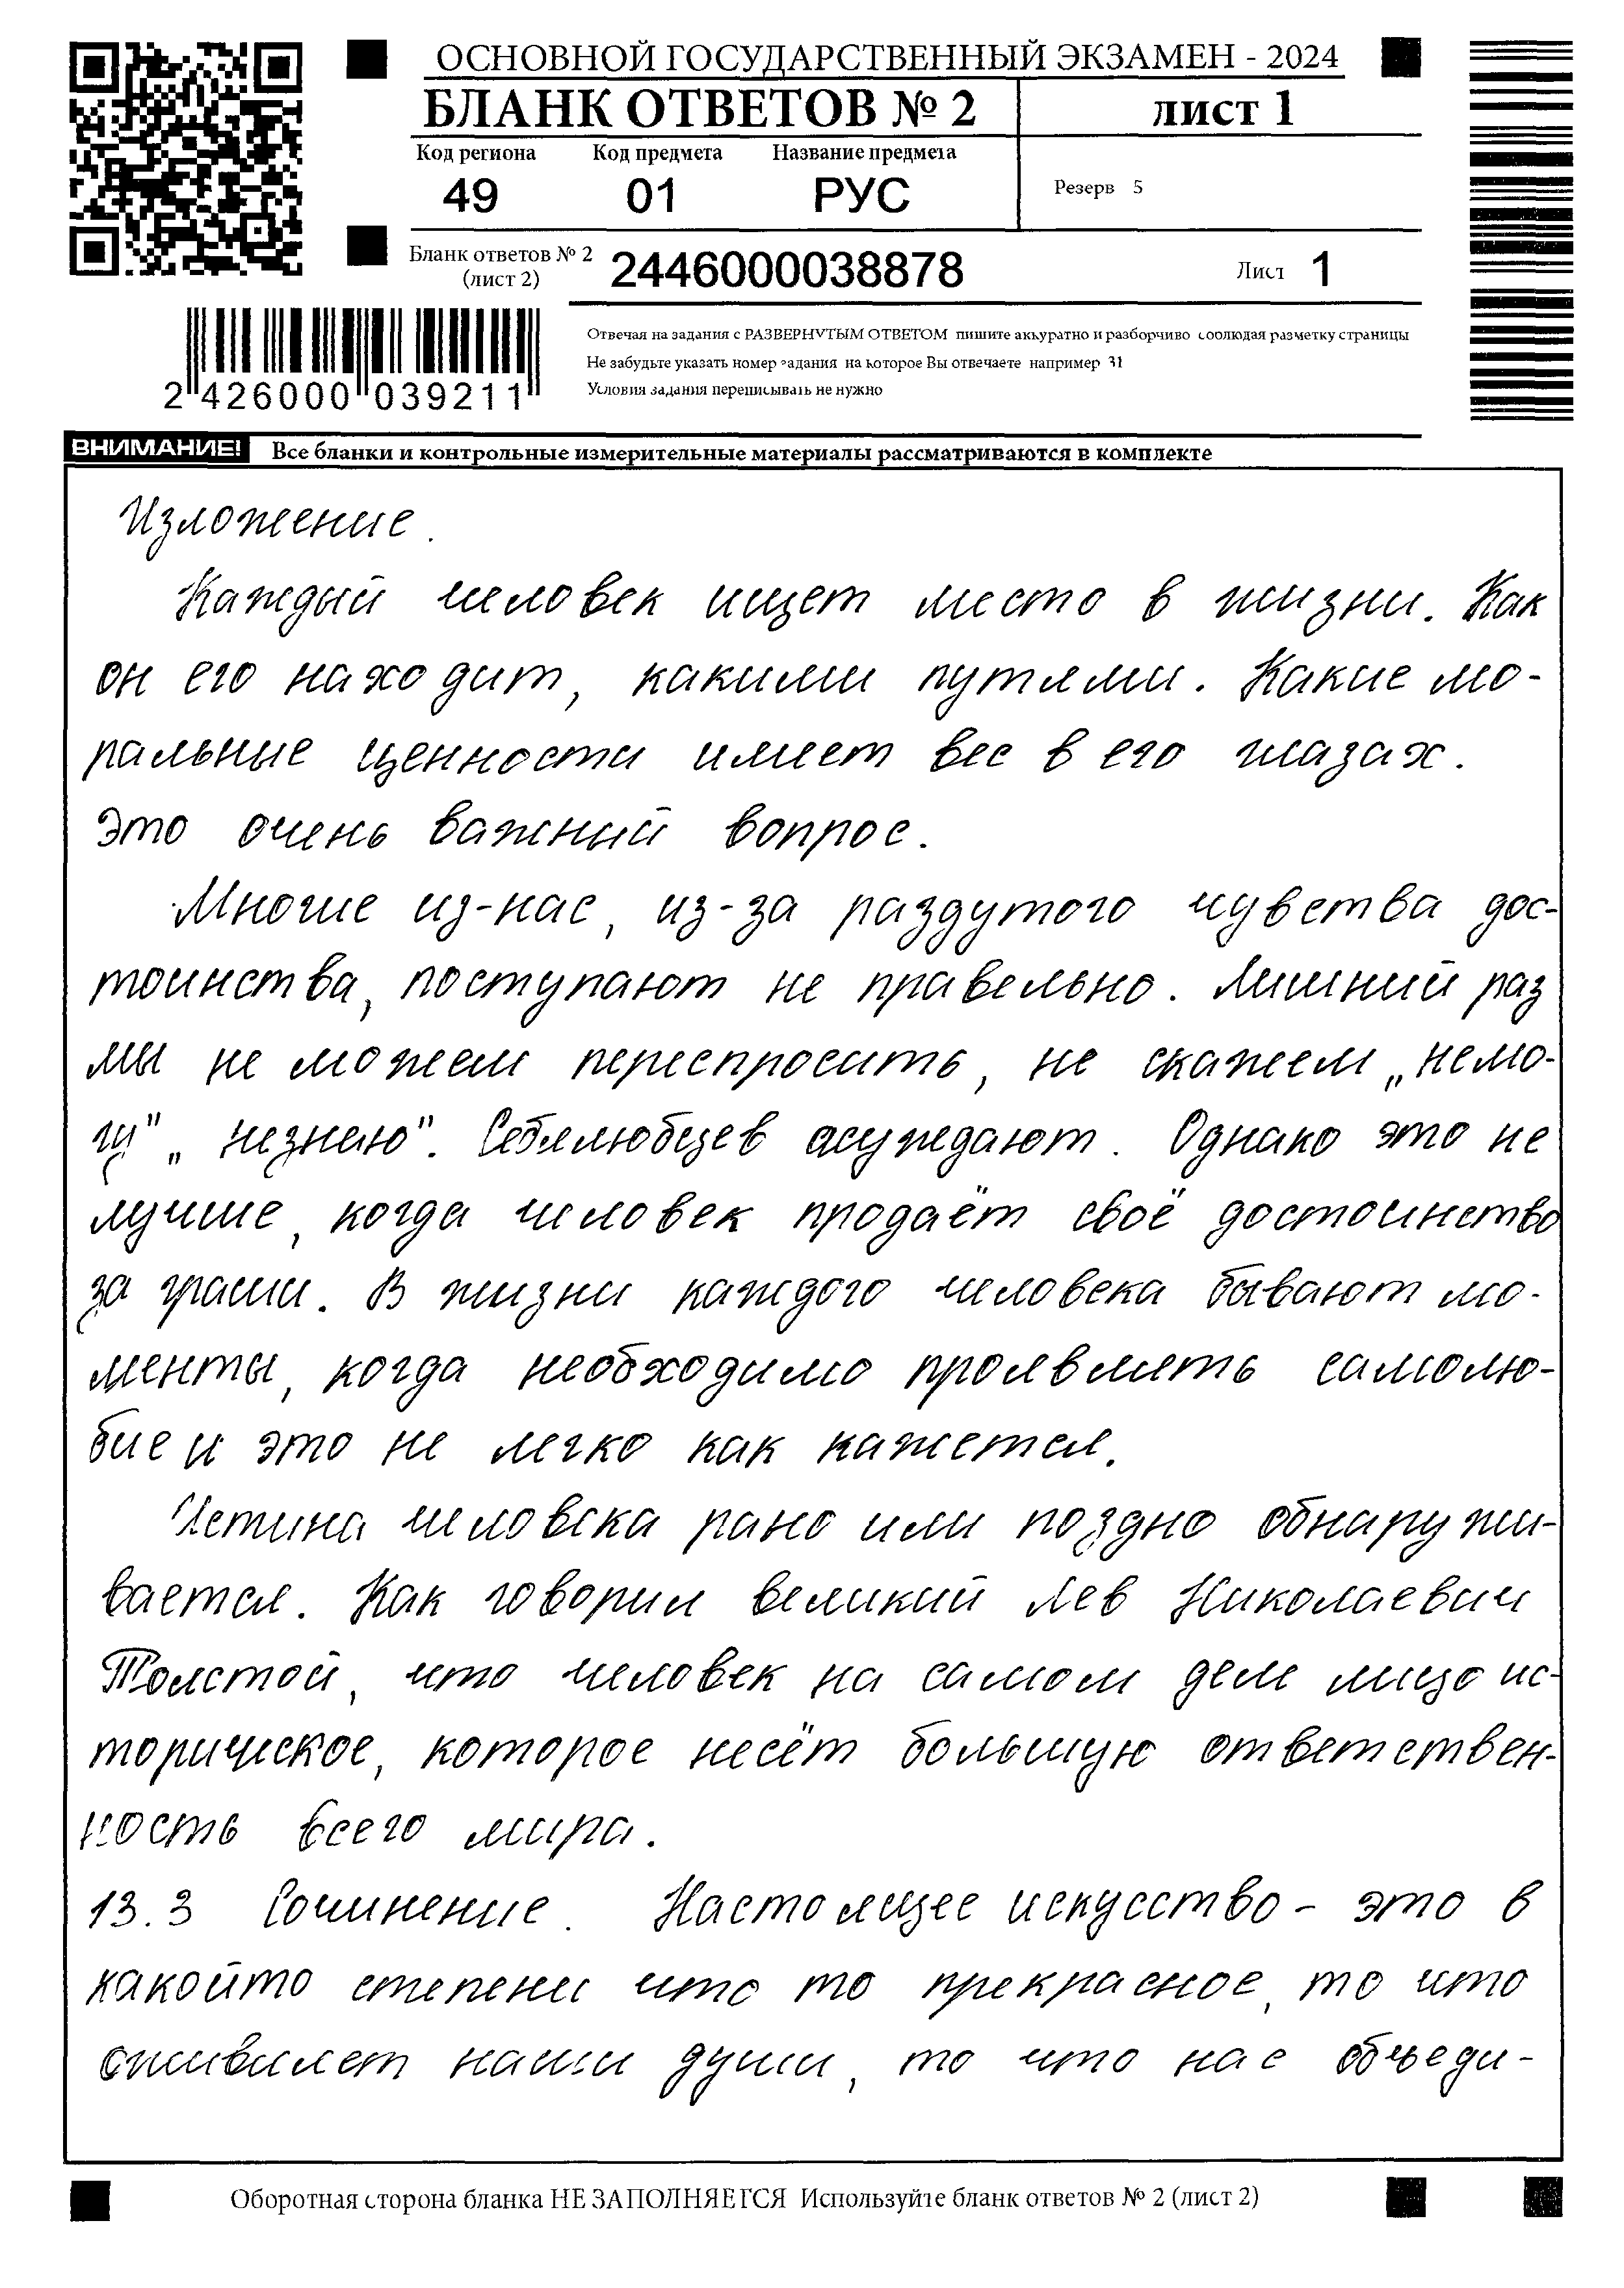 ОСНОВНОЙ ГОСУДАРСТВЕННЫЙ ЭКЗАМЕН - 2024
БЛАНК ОТВЕТОВ № 2
лист 1
Код региона Код предмета Название предмета
49 01 РУС
Резерв 5
Бланк ответов № 2
(лист 2)
2446000038878
Лист 1
2 426000 039211
Отвечая на задания с РАЗВЕРНУТЫМ ОТВЕТОМ пишите аккуратно и разборчиво соблюдая разметку страницы
Не забудьте указать номер задания на которое Вы отвечаете например 31
Условия задания переписывать не нужно
ВНИМАНИЕ! Все бланки и контрольные измерительные материалы рассматриваются в комплекте
Изложение.
Каждый человек ищет место в жизни. Как
он его находит, какими путями. Какие мо-
ральные ценности имеет вес в его глазах.
Это очень важный вопрос.
Многие из-нас, из-за раздутого чувства дос-
тоинства, поступают не правельно. Лишний раз
мы не можем переспросить, не скажем „немо-
гу" „незнаю". Себялюбцев осуждают. Однако это не
лучше, когда человек продаёт своё достоинство
за граши. В жизни каждого человека бывают мо-
менты, когда необходимо проявлять самолю-
бие и это не легко как кажется.
Истина человека рано или поздно обнаружи-
вается. Как говорил великий Лев Николаевич
Толстой, что человек на самом деле лицо ис-
торическое, которое несёт большую ответствен-
ность всего мира.
13.3 Сочинение. Настоящее искусство - это в
какойто степени что то прекрасное, то что
оживляет наши души, то что нас объеди-
Оборотная сторона бланка НЕ ЗАПОЛНЯЕТСЯ Используйте бланк ответов № 2 (лист 2)